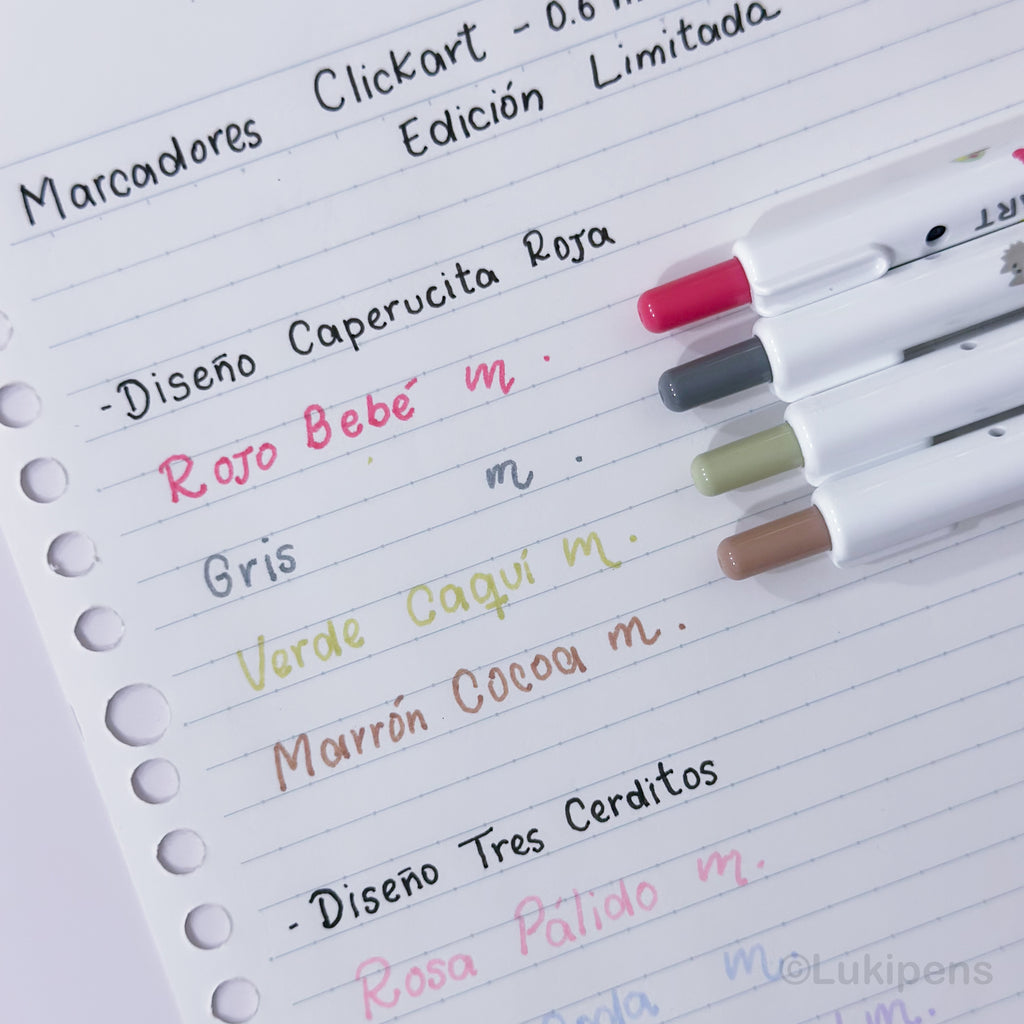 Marcadores Clickart - 0.6
Edición Limitada
- Diseño Caperucita Roja
Rojo Bebé m.
Gris m.
Verde Caquí m.
Marrón Cocoa m.
- Diseño Tres Cerditos
Rosa Pálido m.
m.
m.
©Lukipens
ART